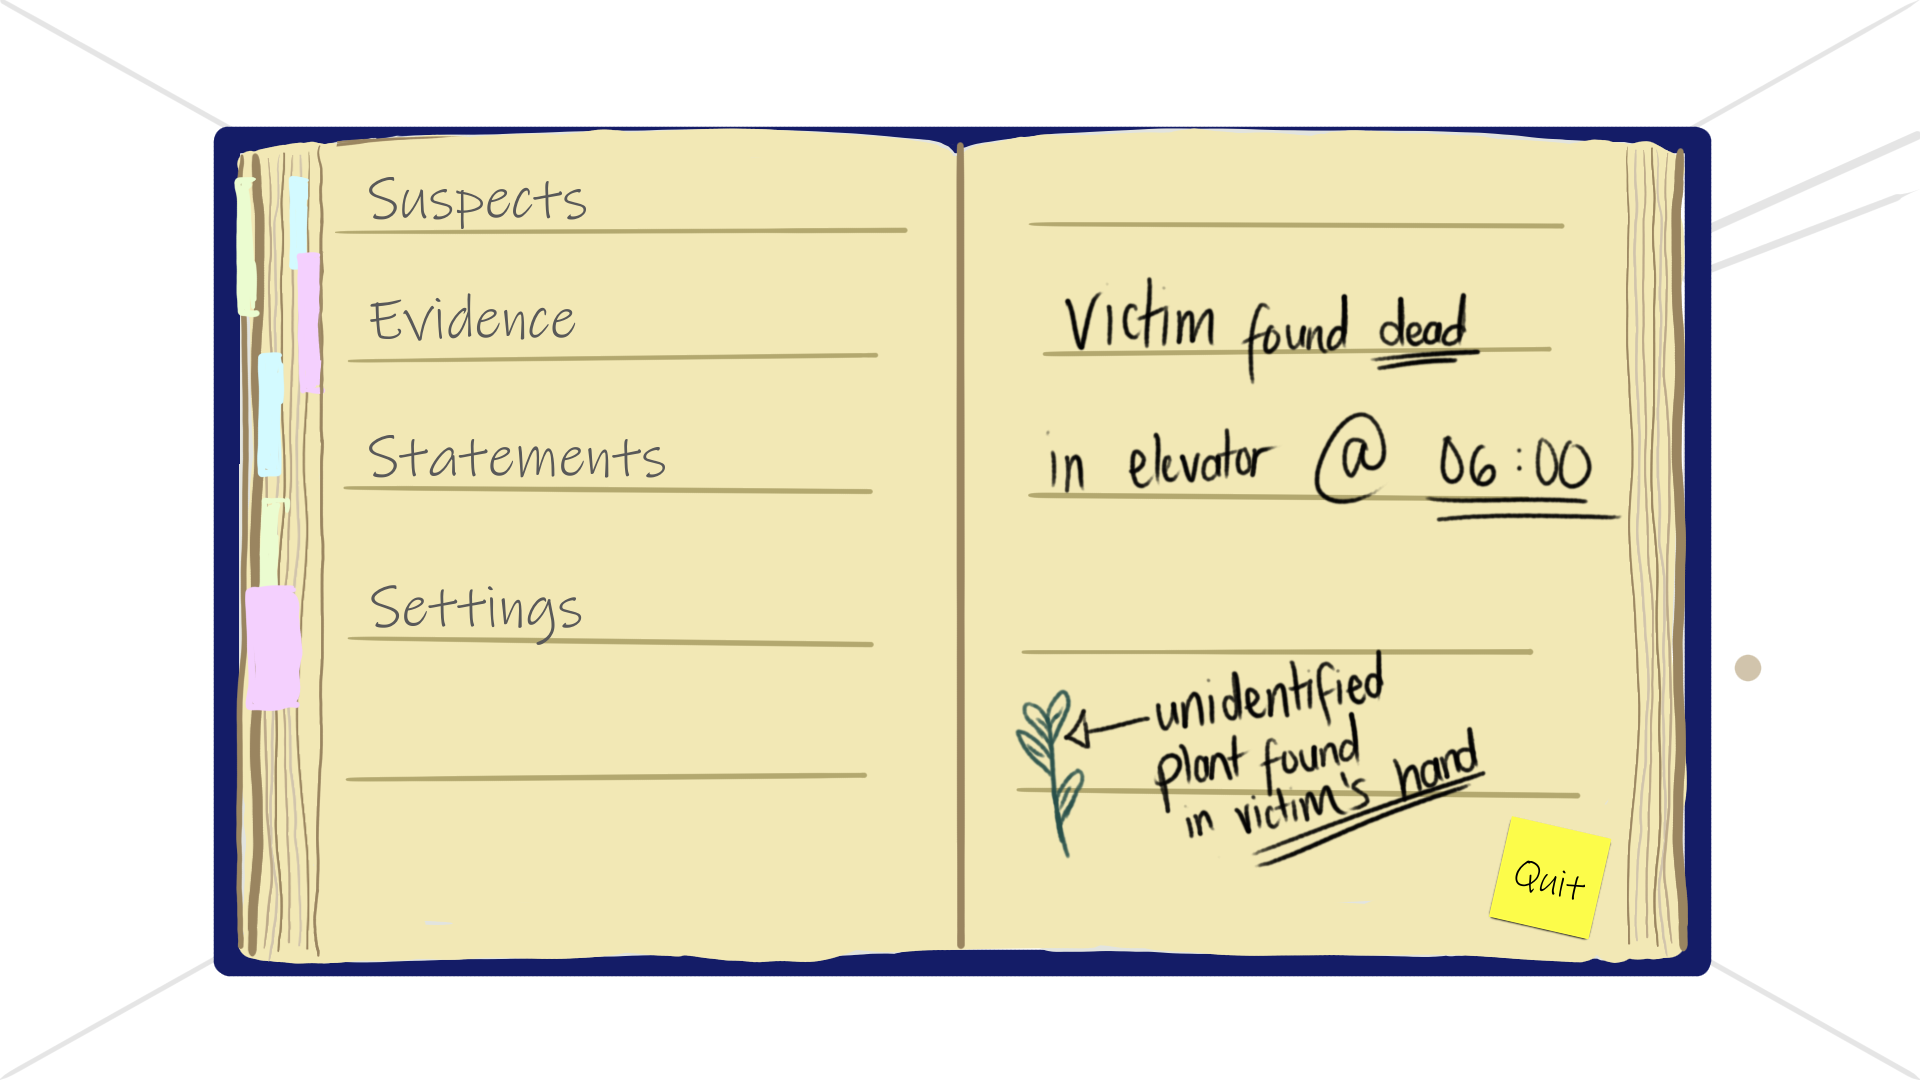 Suspects
Evidence
Statements
Settings
Victim found dead
in elevator @ 06:00
unidentified
plant found
in victim's hand
Quit